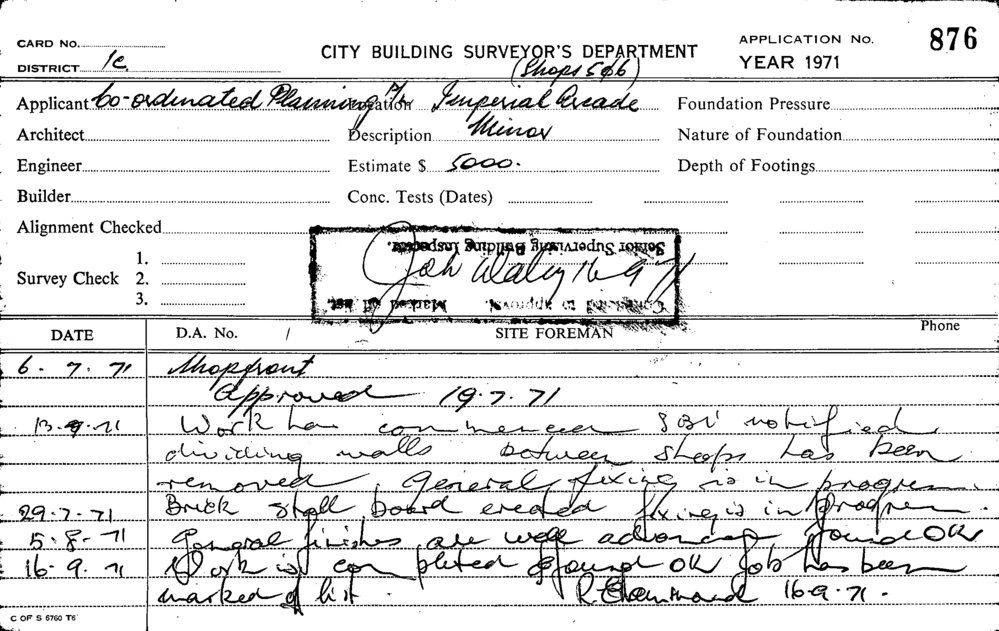 CARD No.
DISTRICT 1c
CITY BUILDING SURVEYOR'S DEPARTMENT
APPLICATION No. 876
YEAR 1971
(Shops 5&6)
Applicant Co-ordinated Planning P/L Location Imperial Arcade Foundation Pressure
Architect Description Minor Nature of Foundation
Engineer Estimate $ 5000. Depth of Footings
Builder Conc. Tests (Dates)
Alignment Checked
Survey Check 1.
2.
3.
Senior Supervising Building Inspector.
16-9-71
Completed to approval. Marked off list.
DATE D.A. No. / SITE FOREMAN Phone
6. 7. 71 Shopfront
Approved 19.7.71
13.9.71 Work has commenced SBI notified
dividing walls between shops has been
removed General fixing is in progress.
29-7-71 Brick stall board erected fixing is in progress.
5-8-71 General finishes are well advanced found OK
16-9.71 Work is completed & found OK Job has been
marked of list. 16-9-71.
C OF S 6760 T6